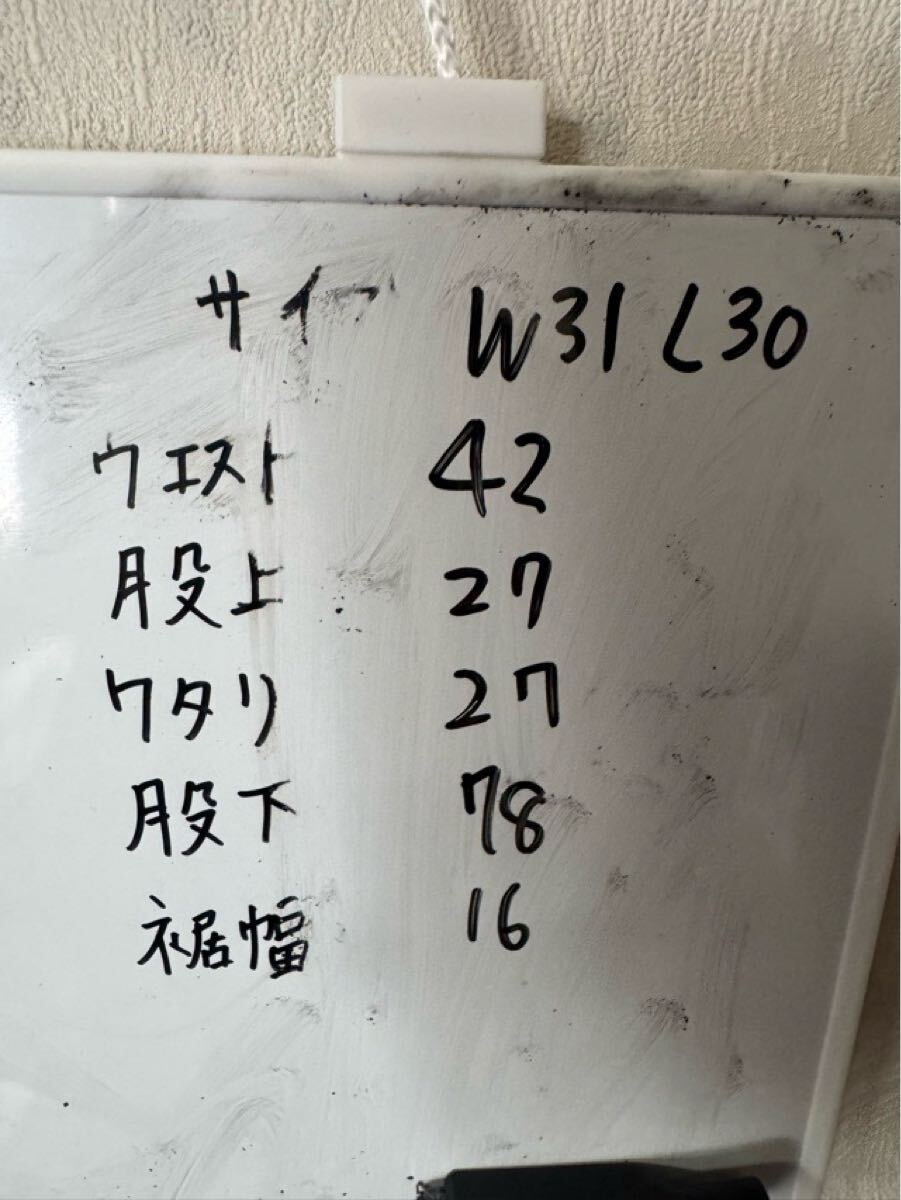 サイズ W31 L30
ウエスト 42
股上 27
ワタリ 27
股下 78
裾幅 16